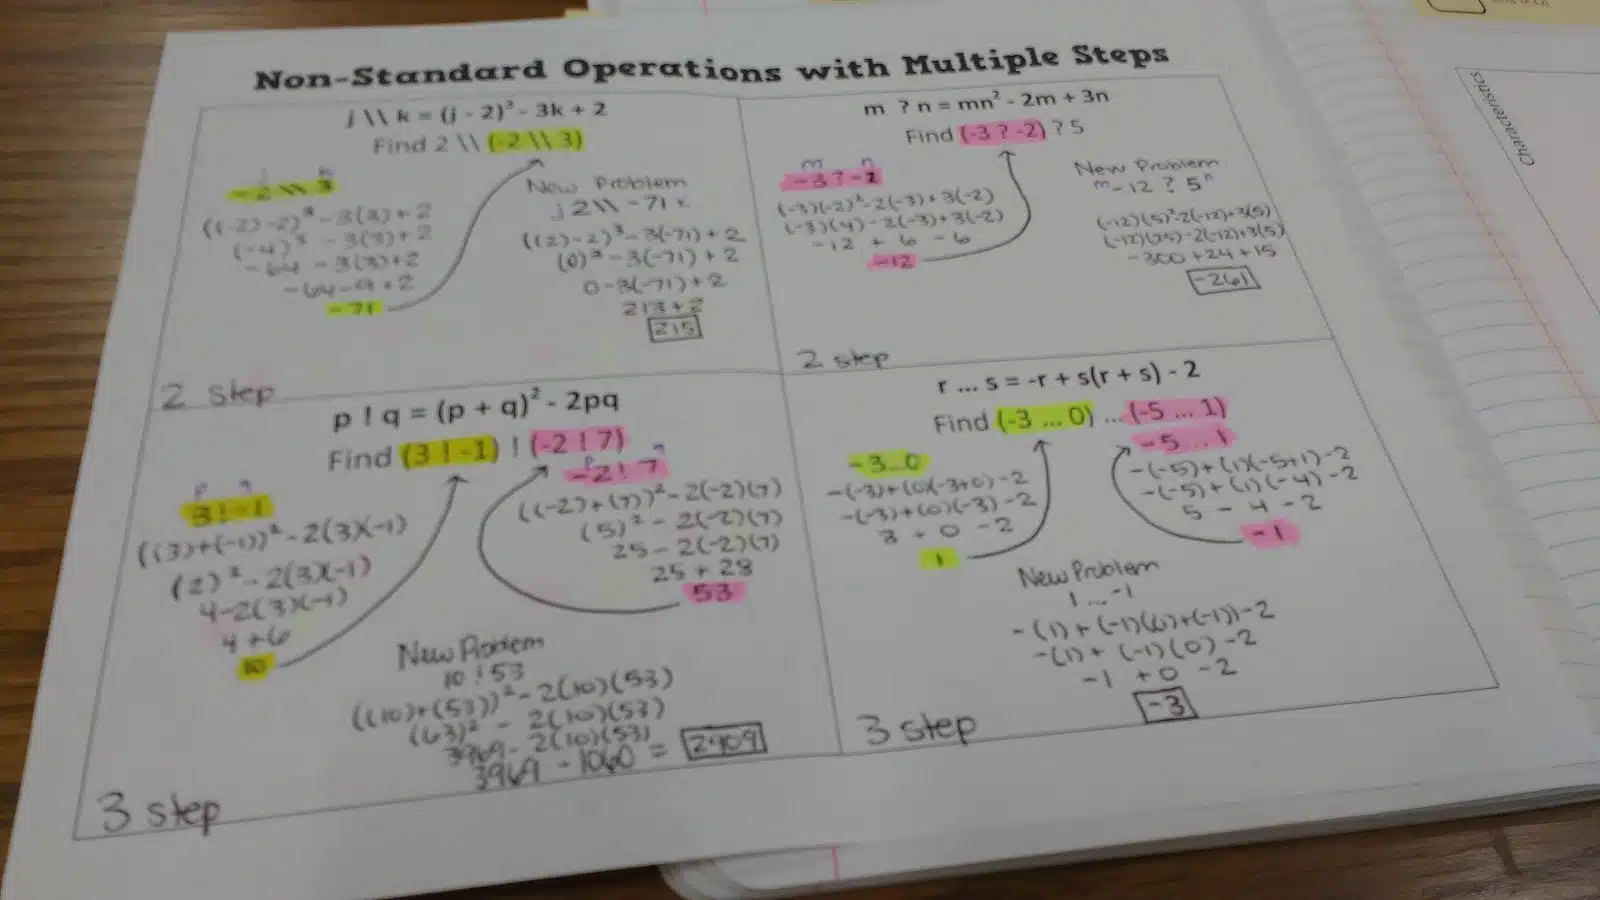 Non-Standard Operations with Multiple Steps
j \\ k = (j - 2)³ - 3k + 2
Find 2 \\ (-2 \\ 3)
j k
-2 \\ 3
((-2)-2)³ - 3(3) + 2
(-4)³ - 3(3) + 2
-64 - 3(3) + 2
-64 - 9 + 2
-71
New Problem
j 2 \\ -71 k
((2)-2)³ - 3(-71) + 2
(0)³ - 3(-71) + 2
0 - 3(-71) + 2
213 + 2
215
2 step
m ? n = mn² - 2m + 3n
Find (-3 ? -2) ? 5
m n
-3 ? -2
(-3)(-2)² - 2(-3) + 3(-2)
(-3)(4) - 2(-3) + 3(-2)
-12 + 6 - 6
-12
New Problem
m -12 ? 5 n
(-12)(5)² - 2(-12) + 3(5)
(-12)(25) - 2(-12) + 3(5)
-300 + 24 + 15
-261
2 step
p ! q = (p + q)² - 2pq
Find (3 ! -1) ! (-2 ! 7)
p q
3 ! -1
((3)+(-1))² - 2(3)(-1)
(2)² - 2(3)(-1)
4 - 2(3)(-1)
4 + 6
10
-2 ! 7
((-2)+(7))² - 2(-2)(7)
(5)² - 2(-2)(7)
25 - 2(-2)(7)
25 + 28
53
New Problem
10 ! 53
((10)+(53))² - 2(10)(53)
(63)² - 2(10)(53)
3969 - 2(10)(53)
3969 - 1060 = 2909
3 step
r ... s = -r + s(r + s) - 2
Find (-3 ... 0) ... (-5 ... 1)
-3...0
-(-3)+(0)(-3+0)-2
-(-3)+(0)(-3)-2
3 + 0 - 2
1
-5 ... 1
-(-5)+(1)(-5+1)-2
-(-5)+(1)(-4)-2
5 - 4 - 2
-1
New Problem
1 ... -1
-(1)+(-1)((1)+(-1))-2
-(1)+(-1)(0)-2
-1 + 0 - 2
-3
3 step
Characteristics